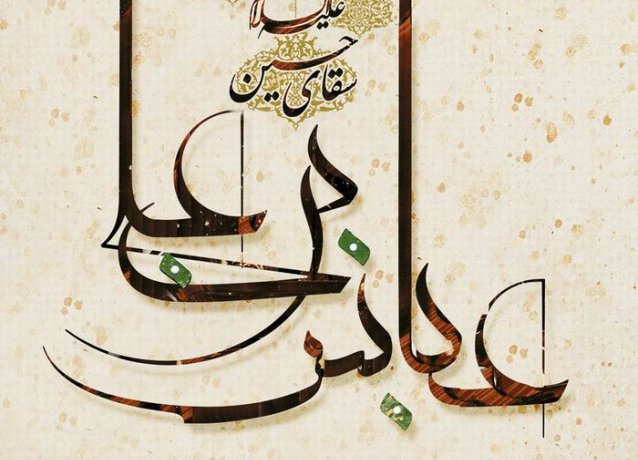 علیه السلام
سقای حسین
عباس بن علی